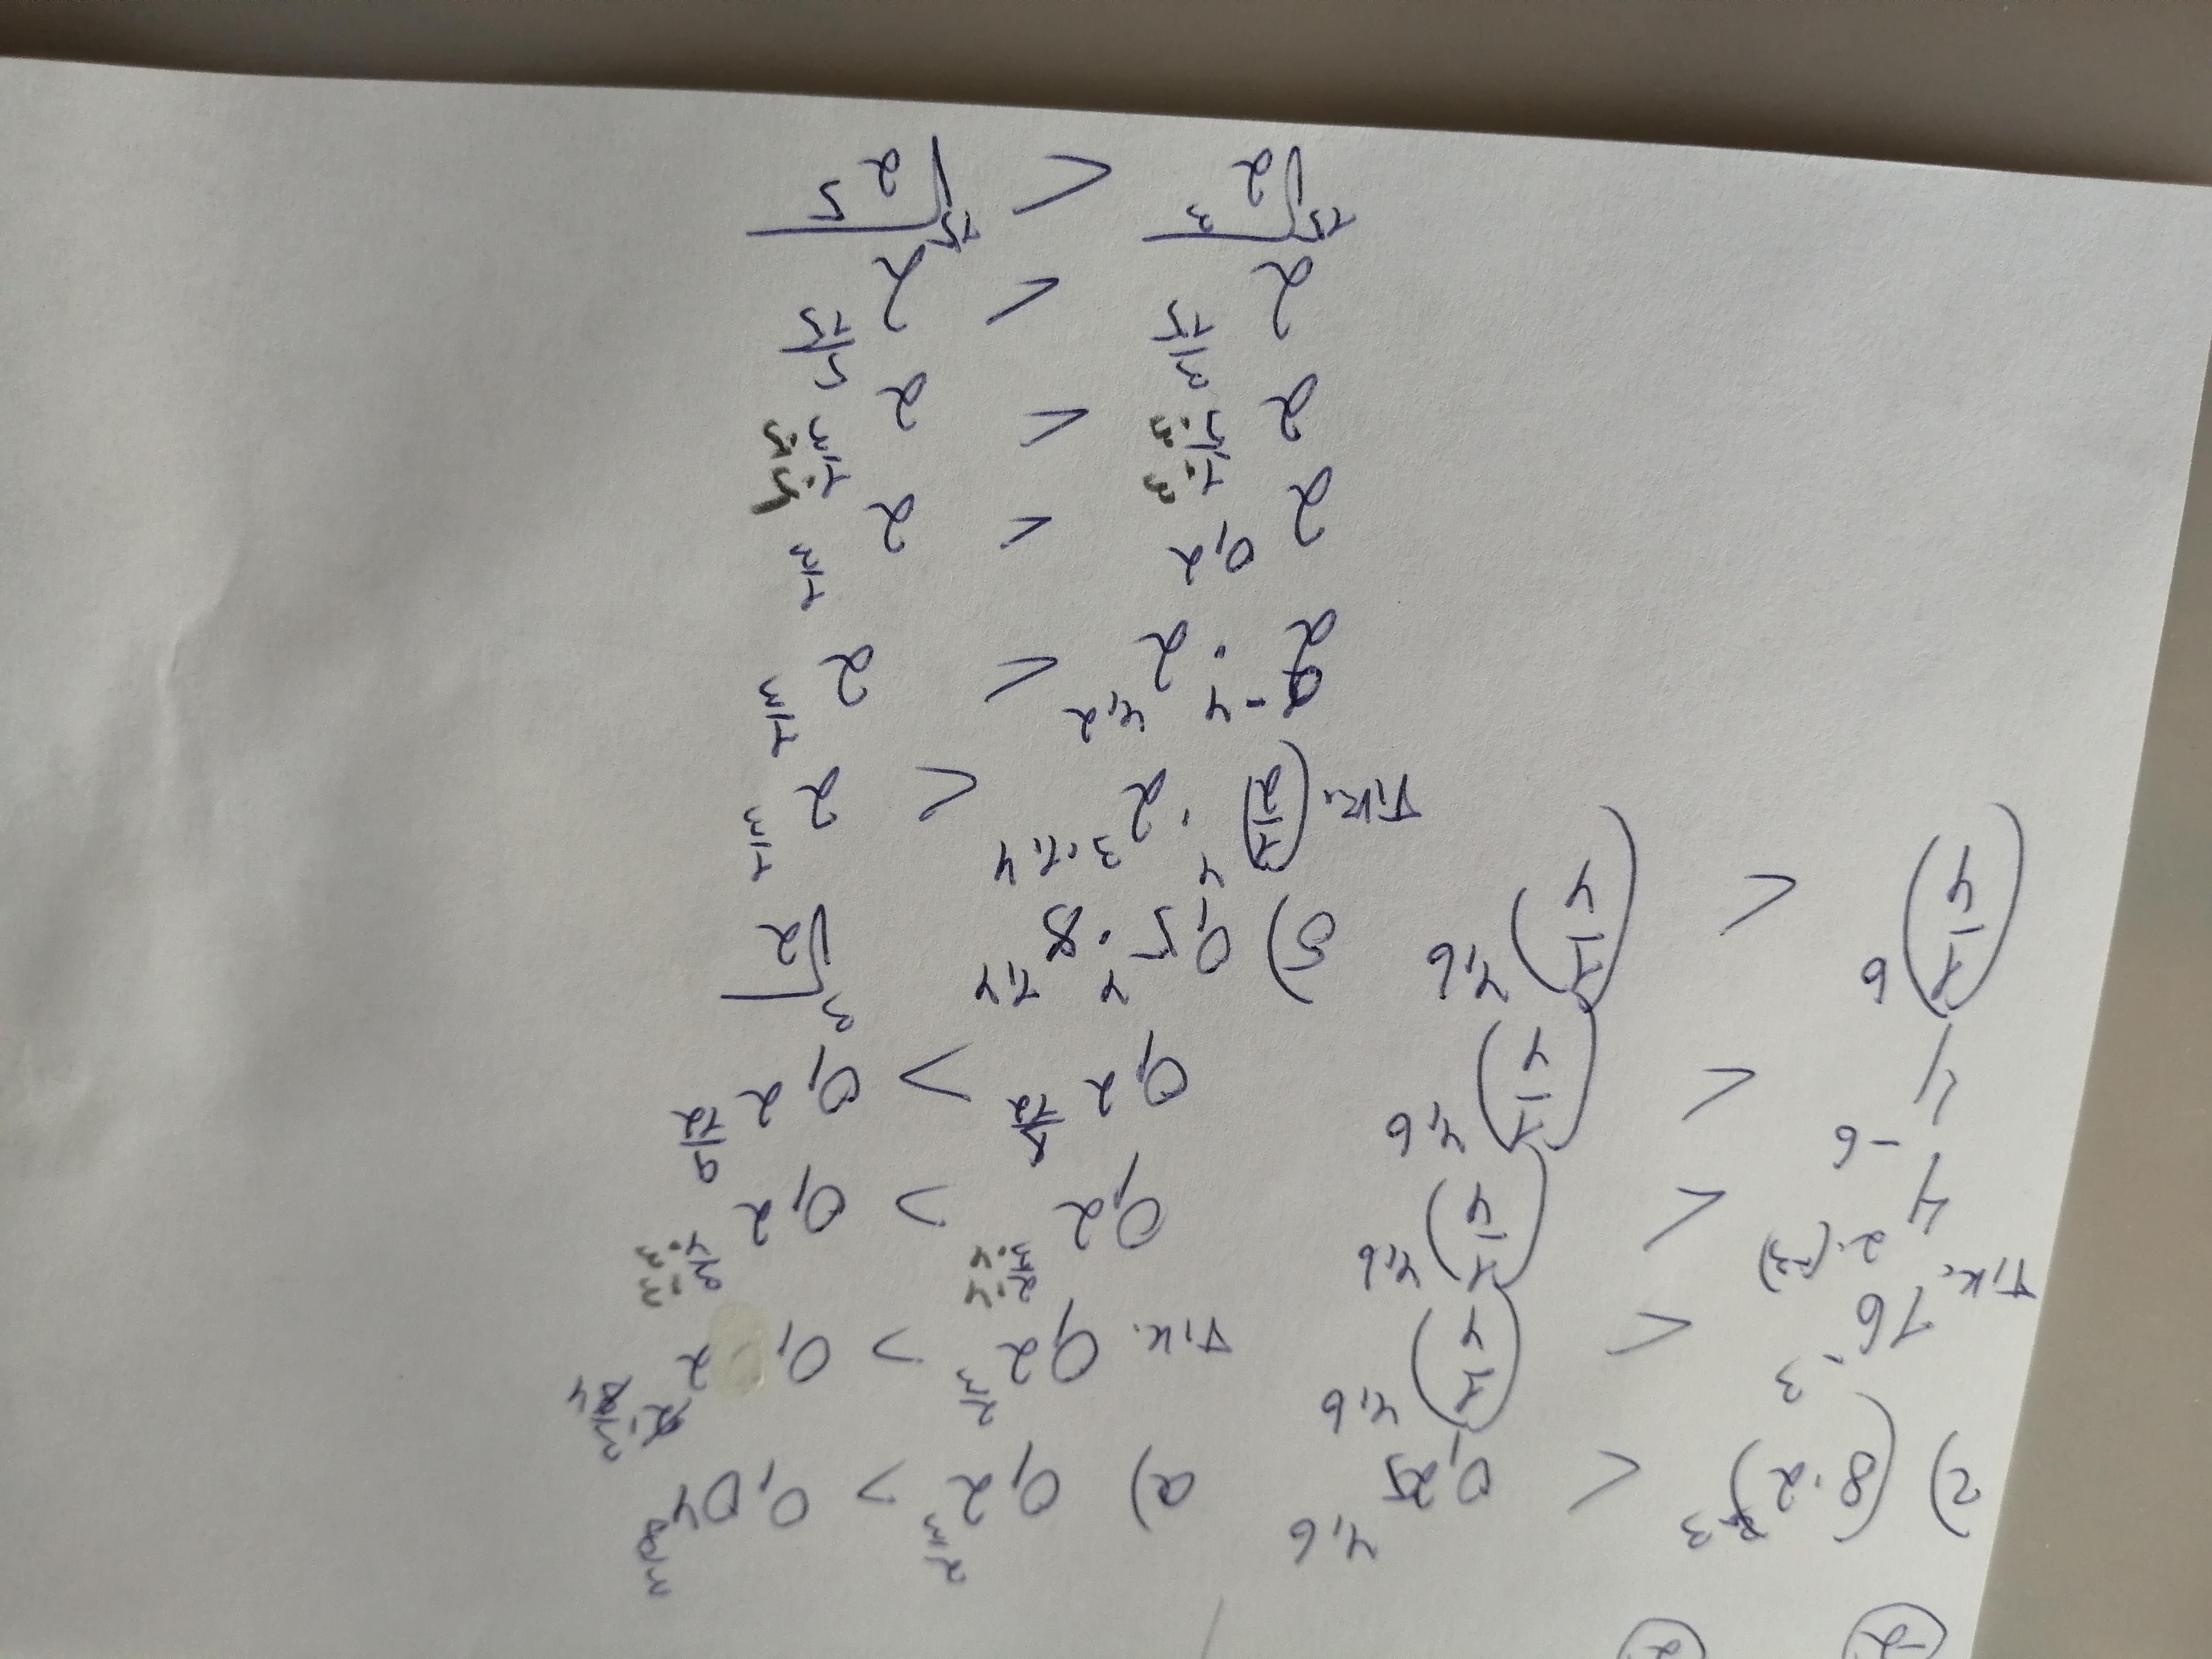 -2 2
г) (8·2)^-3 < 0,25^4,6
16^-3 < (1/4)^4,6
т.к. 4^2·(-3) < (1/4)^4,6
4^-6 < (1/4)^4,6
(1/4)^6 < (1/4)^4,6
а) 0,2^2/3 > 0,04^3/8
т.к. 0,2^2/3 > 0,2^2·3/8 4
0,2^2·4/3·4 > 0,2^3·3/4·3
0,2^8/12 > 0,2^9/12
б) 0,5^4·8^1,4 ∛2
т.к. (1/2)^4·2^3·1,4 < 2^1/3
2^-4·2^4,2 < 2^1/3
2^0,2 < 2^1/3
2^1·3/5·3 < 2^1·5/3·5
2^3/15 < 2^5/15
¹⁵√2^3 < ¹⁵√2^5